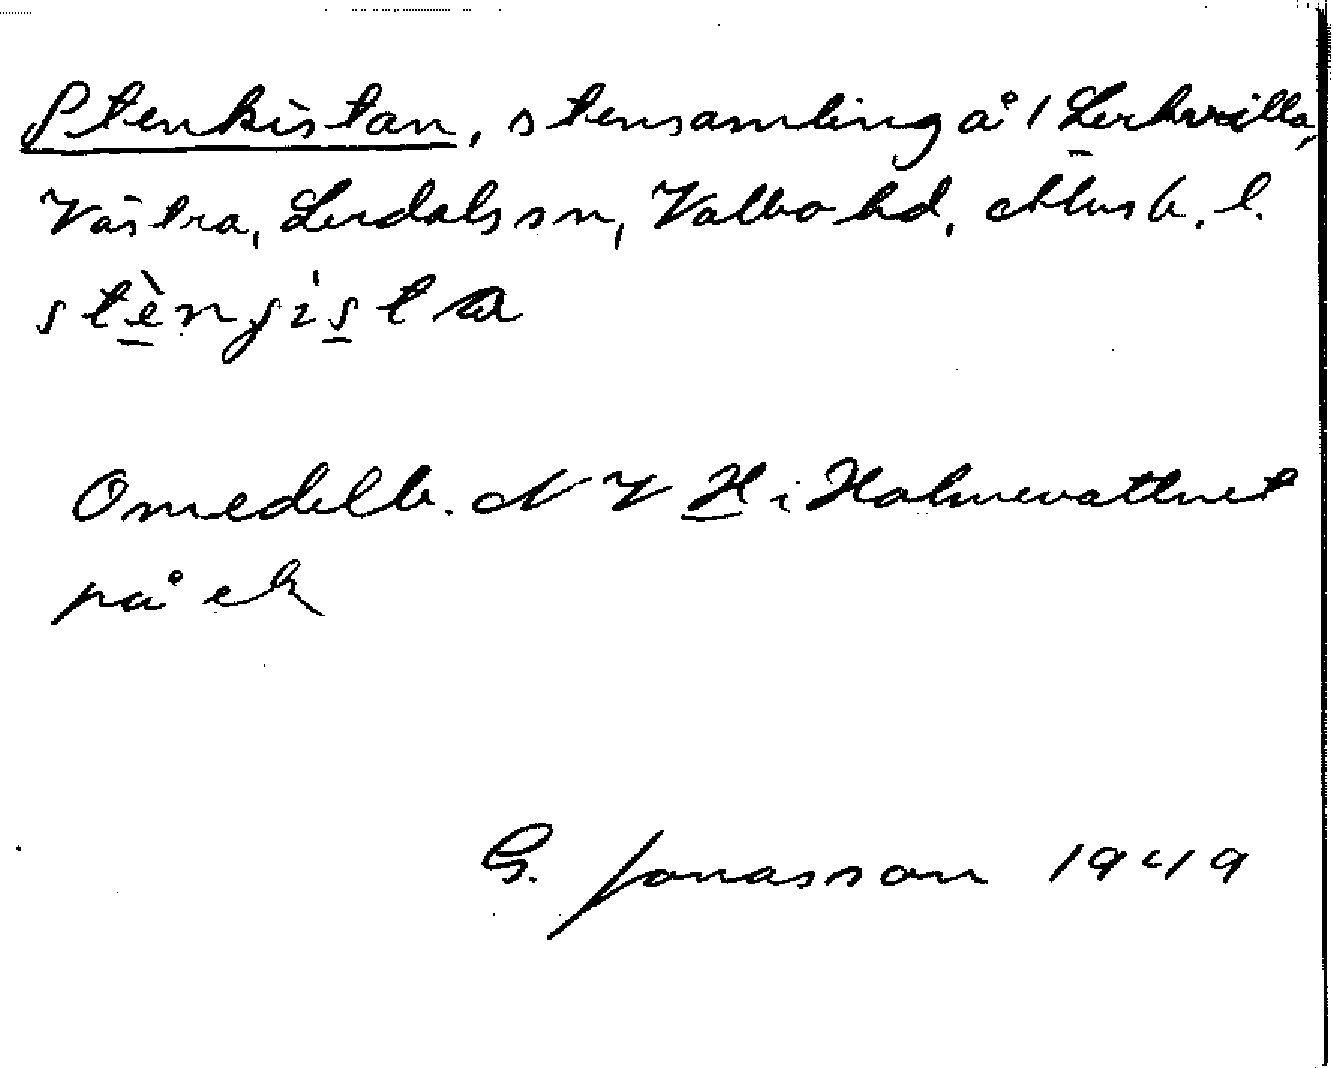 Stenkistan, stensamling å 1 Lerkvilla,
Västra, Lerdals sn, Valbo hd, Älvsb. l.
stènjista
Omedelb. NV H i Holmevattnet
på ek
G. Jonasson 1949